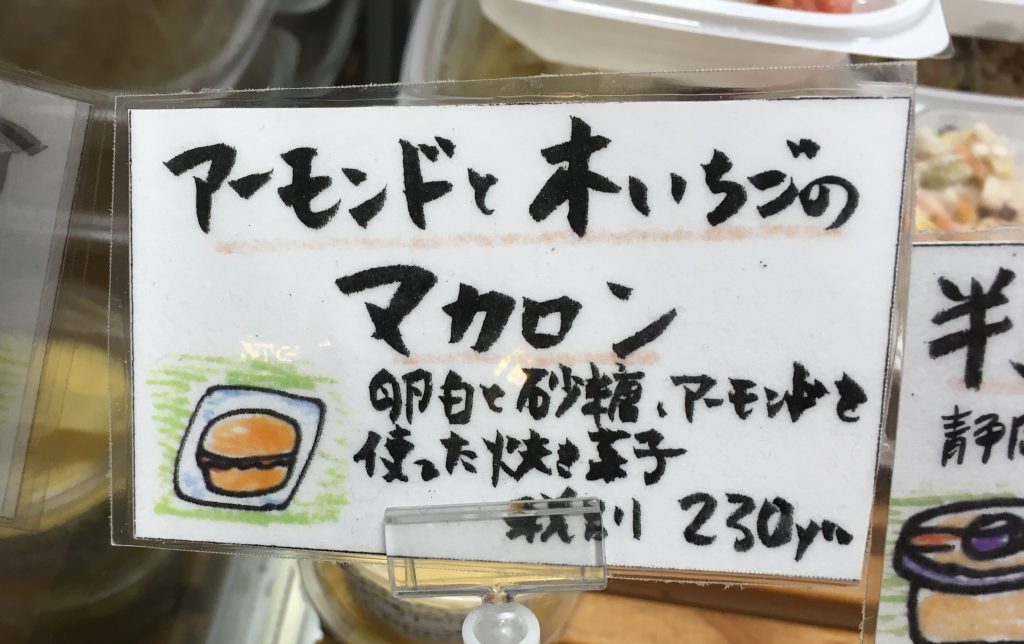 アーモンドと木いちごの
マカロン
卵白と砂糖、アーモンドを
使った焼き菓子
230yen
半
静岡